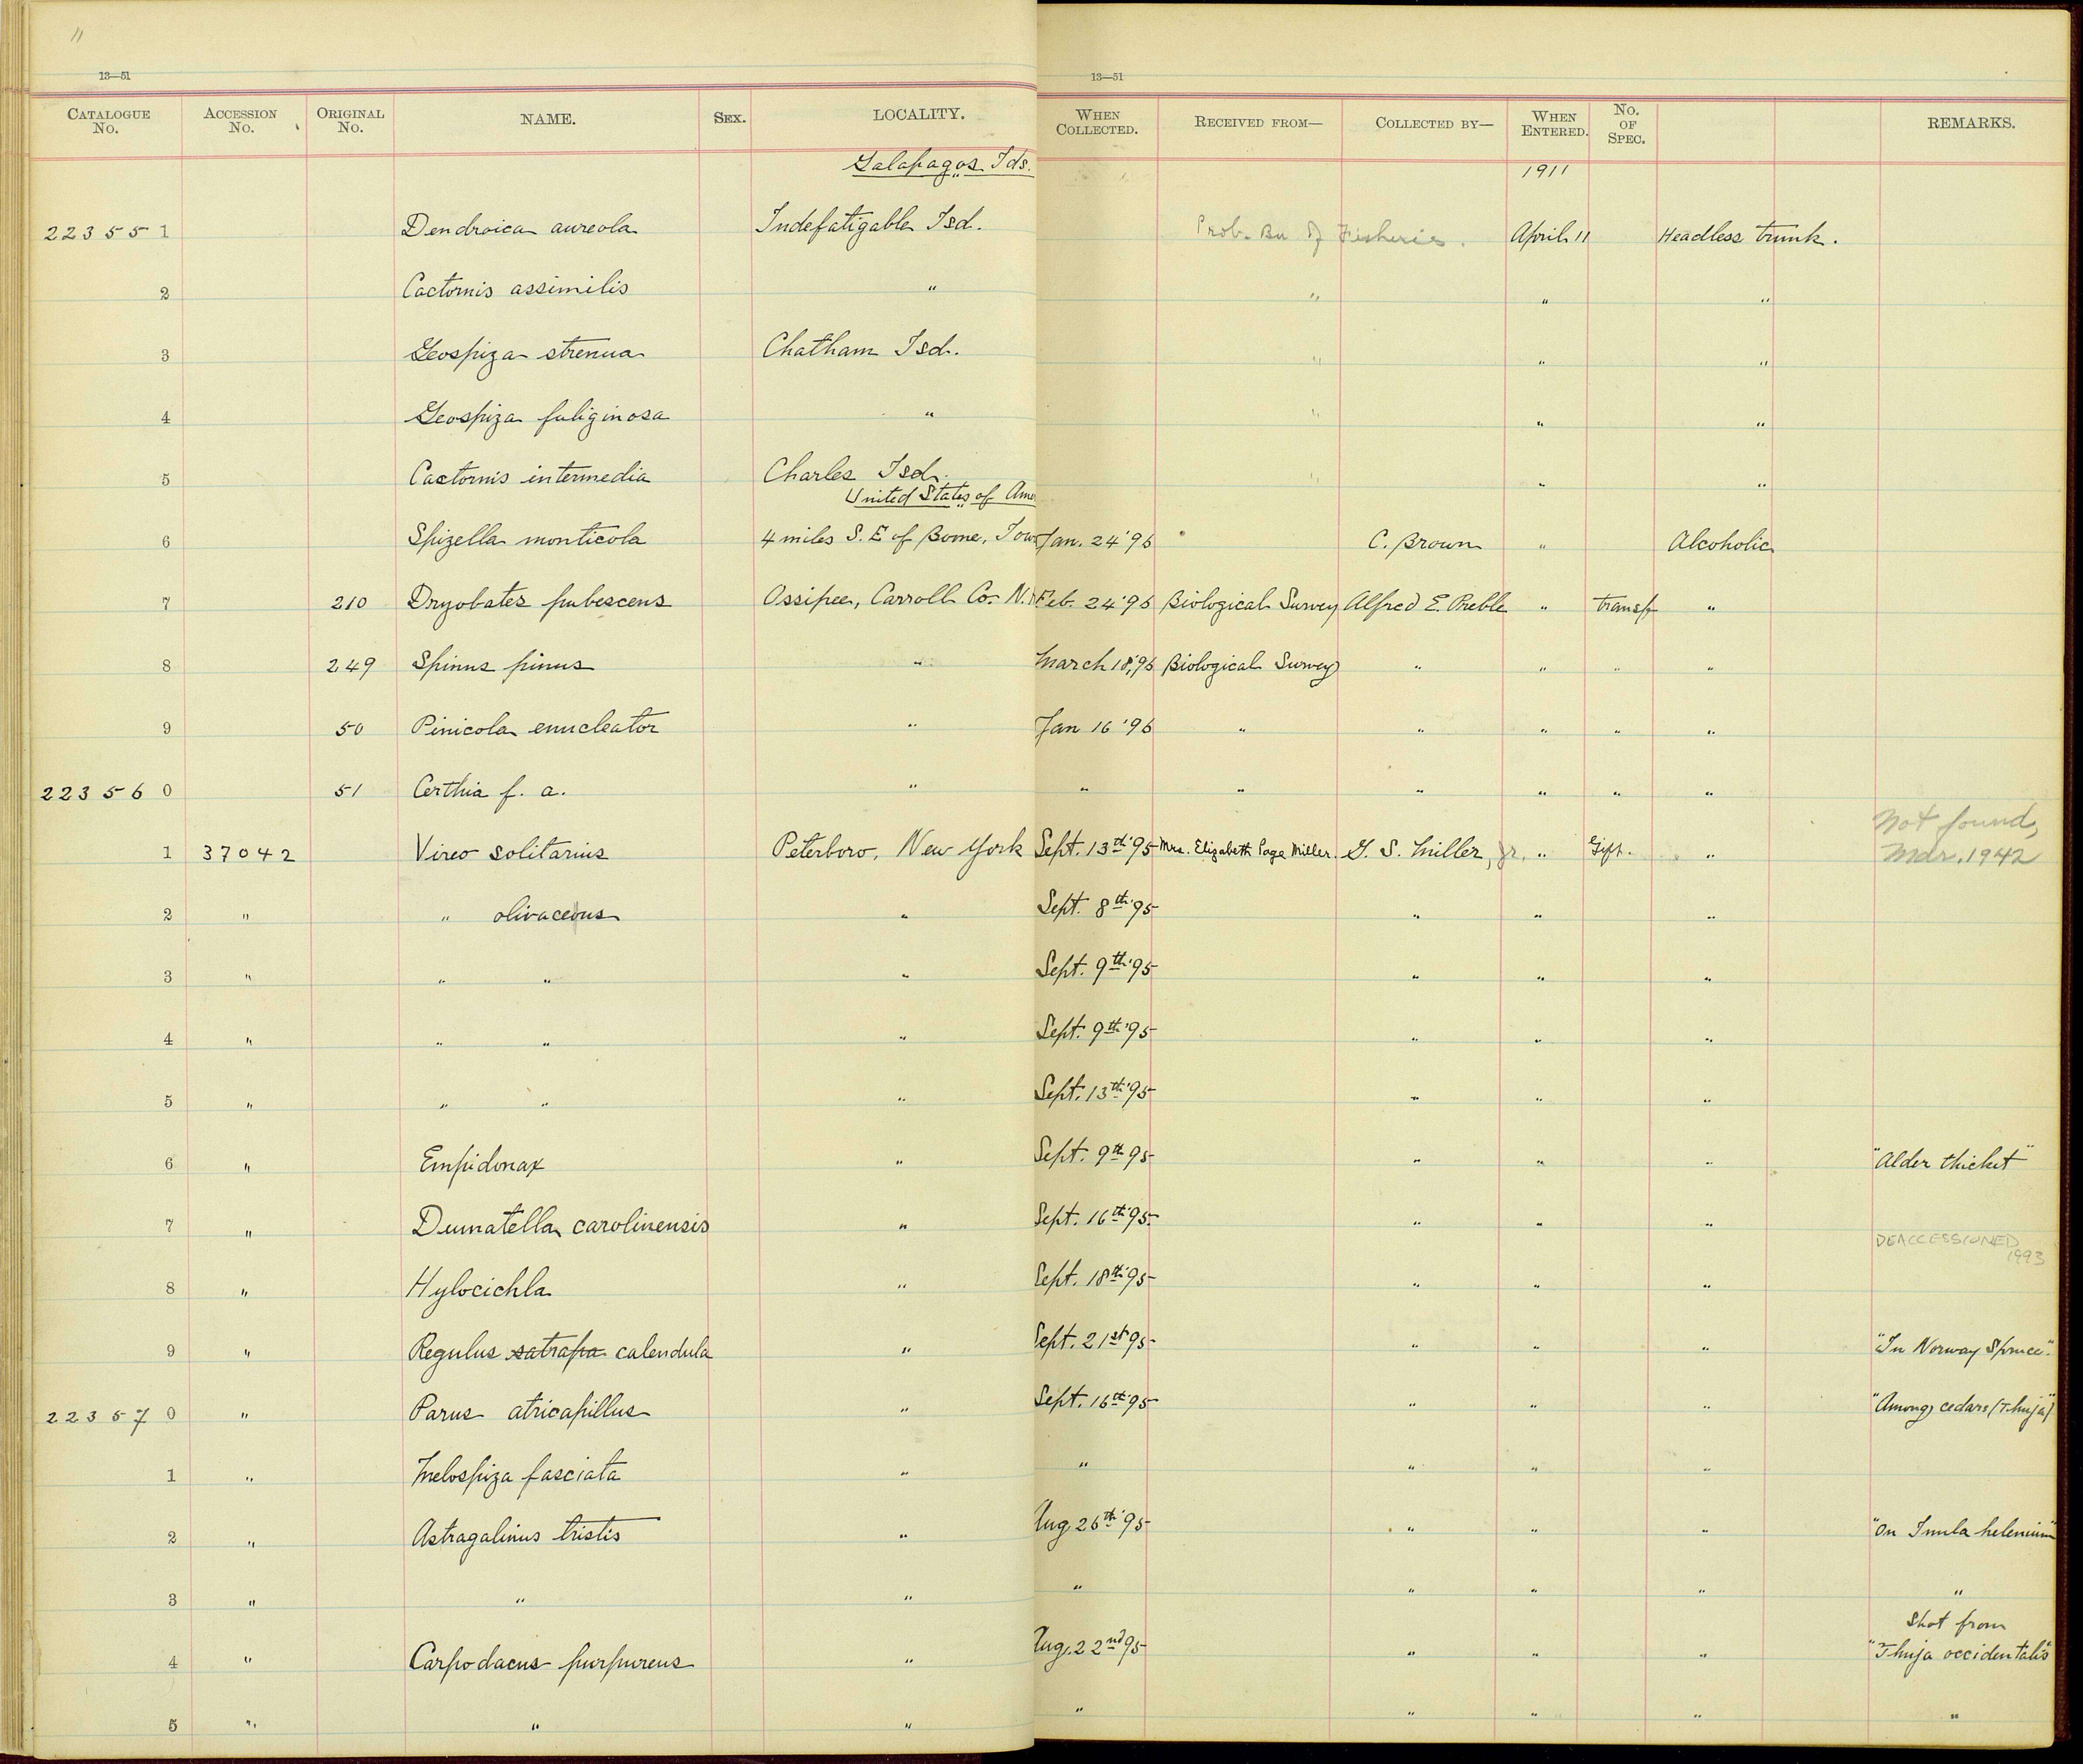 11
13—51 13—51
CATALOGUE No. ACCESSION No. ORIGINAL No. NAME. SEX. LOCALITY. WHEN COLLECTED. RECEIVED FROM— COLLECTED BY— WHEN ENTERED. No. OF SPEC. REMARKS.
Galapagos Ids. 1911
223551 Dendroica aureola Indefatigable Isd. Prob. Bu of Fisheries. April 11 Headless trunk.
2 Cactornis assimilis " " " "
3 Geospiza strenua Chatham Isd. " " "
4 Geospiza fuliginosa " " " "
5 Cactornis intermedia Charles Isd. " " "
United States of Ame
6 Spizella monticola 4 miles S. E of Boone, Iow Jan. 24 '96 " C. Brown " Alcoholic
7 210 Dryobates pubescens Ossipee, Carroll Co. N. Feb. 24 '96 Biological Survey Alfred E. Preble " transf "
8 249 Spinus pinus " March 18, '96 Biological Survey " " " "
9 50 Pinicola enucleator " Jan 16 '96 " " " " "
223560 51 Certhia f. a. " " " " " " "
Not found,
1 37042 Vireo solitarius Peterboro, New York Sept. 13th '95 Mrs. Elizabeth Page Miller. G. S. Miller, jr. " Gift. " Mar. 1942
2 " " olivaceous " Sept. 8th '95 " " "
3 " " " " Sept. 9th '95 " " "
4 " " " " Sept. 9th '95 " " "
5 " " " " Sept. 13th '95 " " "
6 " Empidonax " Sept. 9th 95 " " " "Alder thicket"
7 " Dumatella carolinensis " Sept. 16th '95 " " "
DEACCESSIONED
1993
8 " Hylocichla " Sept. 18th 95 " " "
9 " Regulus satrapa calendula " Sept. 21st 95 " " " "In Norway Spruce."
223570 " Parus atricapillus " Sept. 16th '95 " " " "Among cedars (Thuja)"
1 " Melospiza fasciata " " " " "
2 " Astragalinus tristis " Aug 26th '95 " " " "On Inula helenium"
3 " " " " " " " "
Shot from
4 " Carpodacus purpureus " Aug. 22nd 95 " " " "Thuja occidentalis"
5 " " " " " " " "